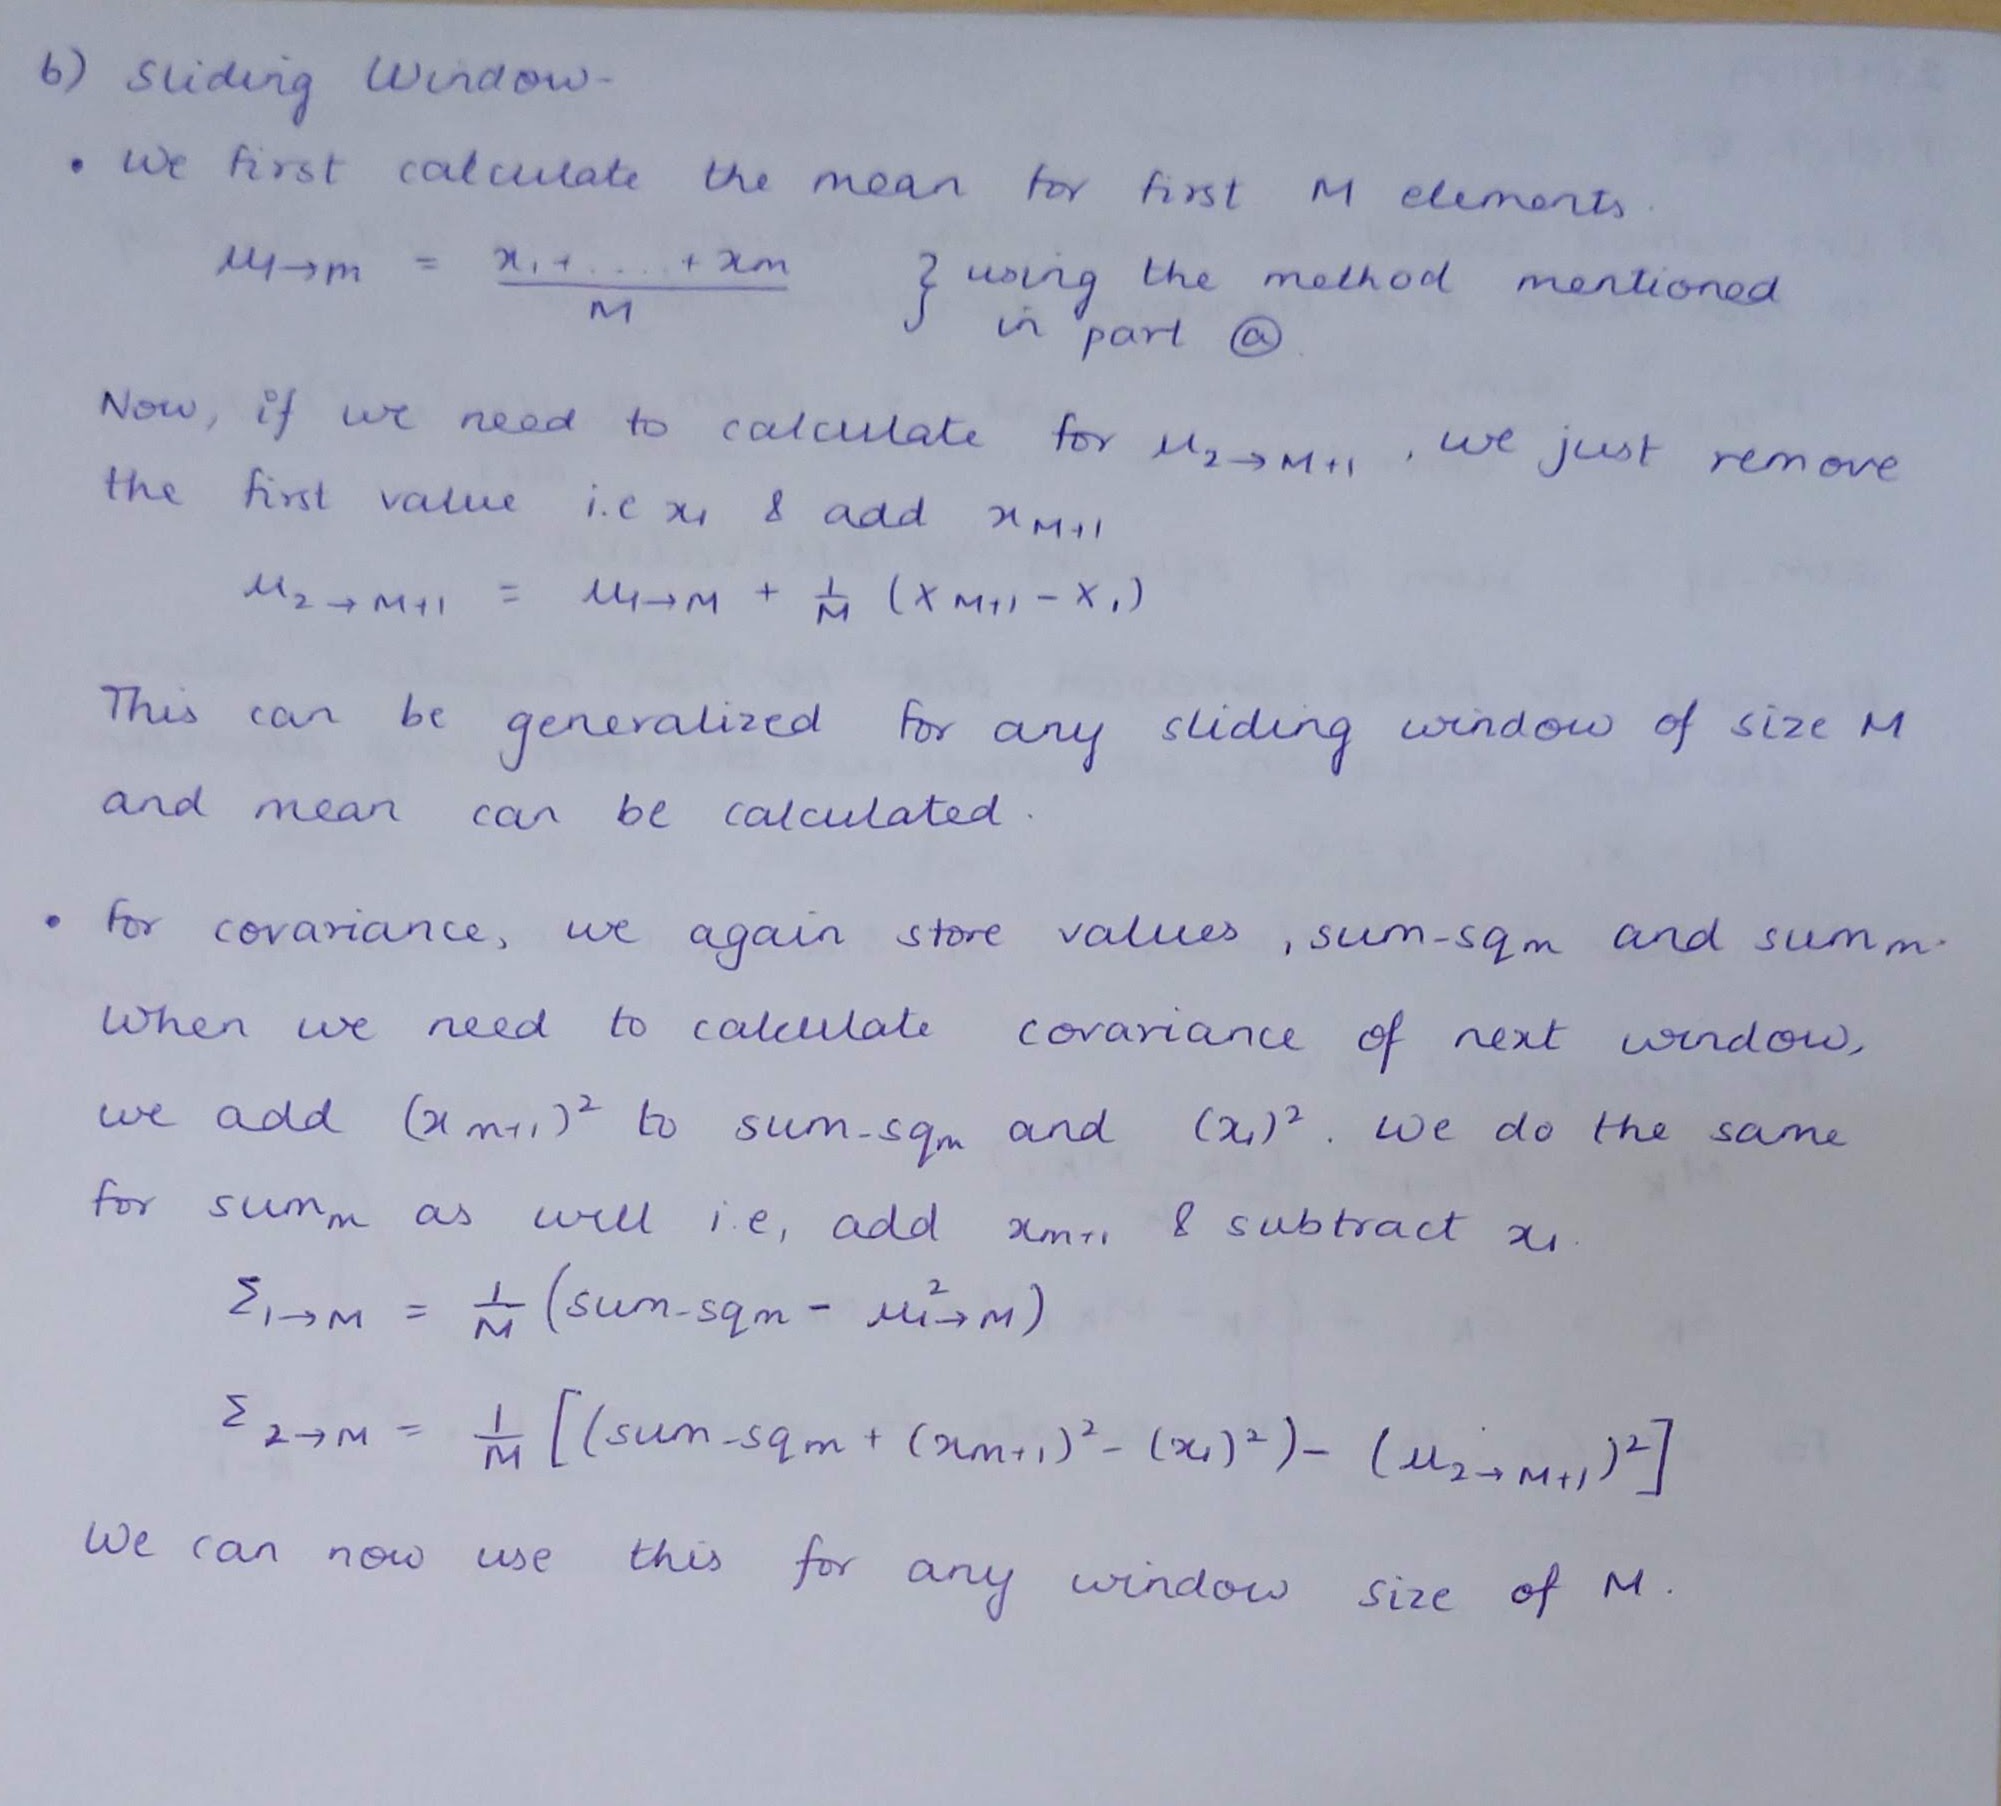 b) Sliding Window-
• We first calculate the mean for first M elements.
μ₁→m = x₁ + .... + xm / M } using the method mentioned
in part ⓐ.
Now, if we need to calculate for μ₂→M+1, we just remove
the first value i.e x₁ & add xM+1
μ₂→M+1 = μ₁→M + 1/M (XM+1 - X₁)
This can be generalized for any sliding window of size M
and mean can be calculated.
• For covariance, we again store values, sum-sqm and summ.
When we need to calculate covariance of next window,
we add (xm+1)² to sum-sqm and (x₁)². We do the same
for summ as well i.e, add xm+1 & subtract x₁.
Σ₁→M = 1/M (sum-sqm - μ²₁→M)
Σ₂→M = 1/M [(sum-sqm + (xm+1)² - (x₁)²) - (μ₂→M+1)²]
We can now use this for any window size of M.